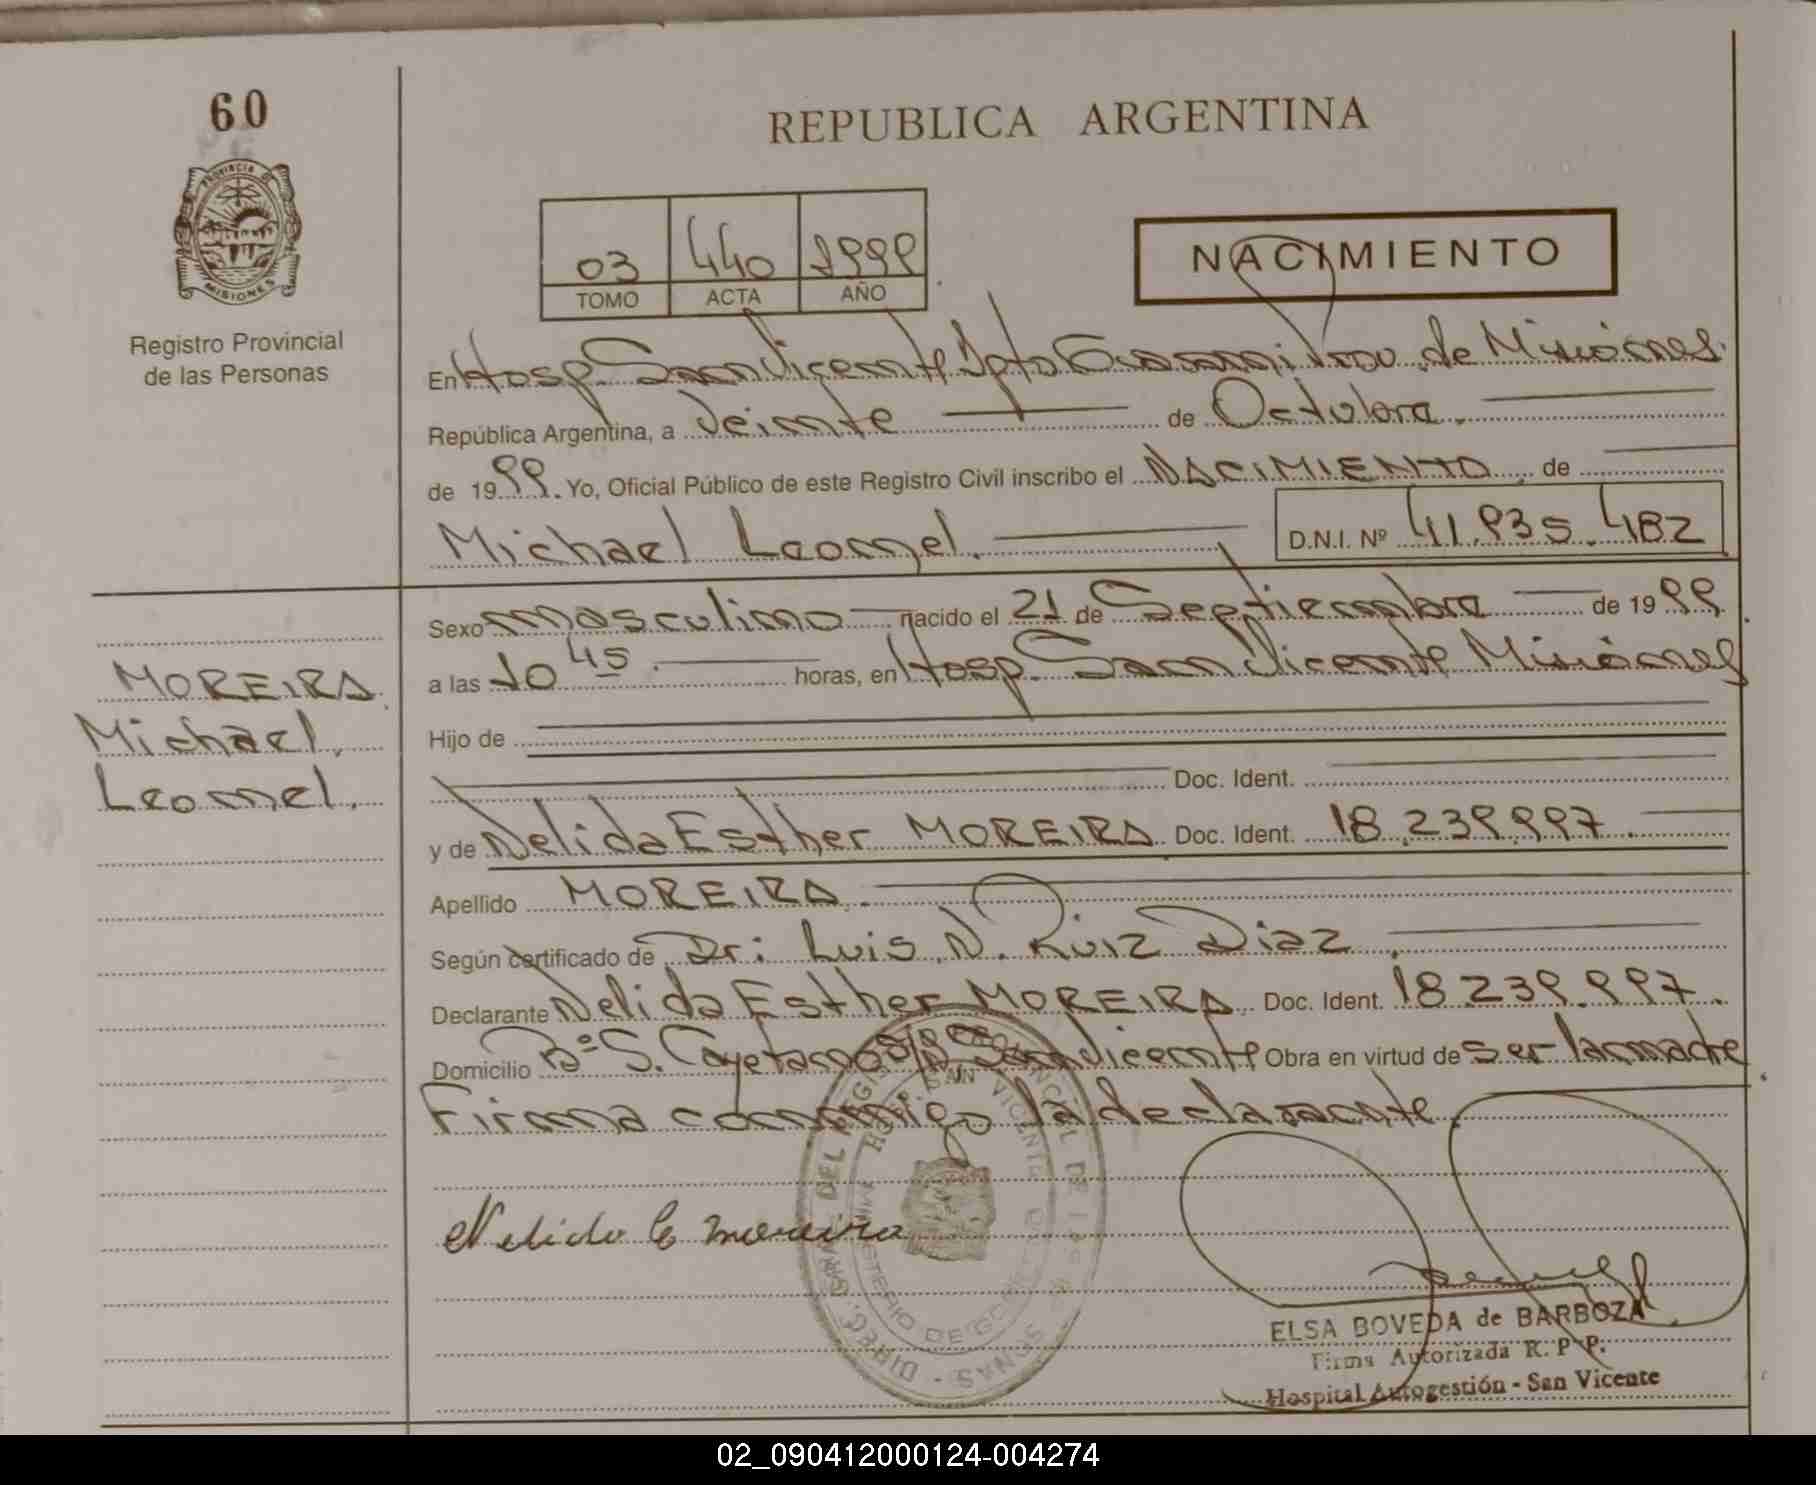 60
PROVINCIA DE
MISIONES
Registro Provincial
de las Personas
REPUBLICA ARGENTINA
03 440 1999
TOMO ACTA AÑO
NACIMIENTO
En Hosp. San Vicente Dpto Guaraní Prov. de Misiones.
República Argentina, a Veinte de Octubre.
de 1999. Yo, Oficial Público de este Registro Civil inscribo el NACIMIENTO, de
Michael Leonel. D.N.I. Nº 41.935.482
Sexo masculino nacido el 21 de Septiembre de 1999.
a las 10 45. horas, en Hosp. San Vicente Misiones
Hijo de
Doc. Ident.
y de Nelida Esther MOREIRA. Doc. Ident. 18.239.997.
Apellido MOREIRA.
Según certificado de Dr: Luis N. Ruiz Diaz.
Declarante Nelida Esther MOREIRA. Doc. Ident. 18.239.997.
Domicilio Bº S. Cayetano S/N San Vicente Obra en virtud de ser la madre
Firma conmigo la declarante.
MOREIRA
Michael,
Leonel.
Nelida E moreira
ELSA BOVEDA de BARBOZA
Firma Autorizada R. P. P.
Hospital Autogestión - San Vicente
02_090412000124-004274